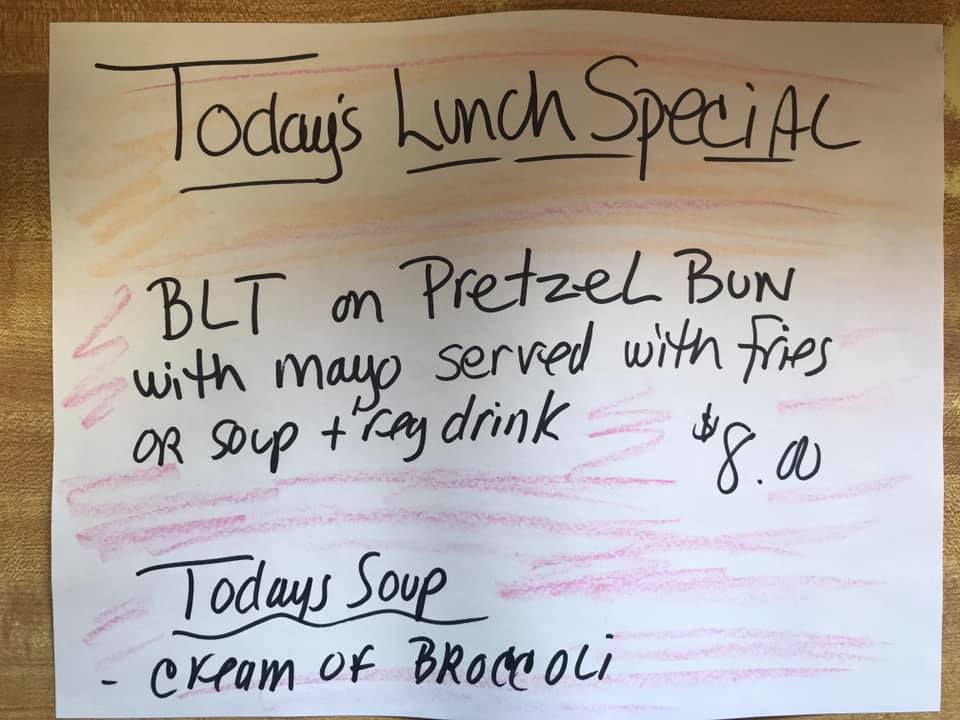 Today's Lunch Special
BLT on Pretzel Bun
with mayo served with fries
or soup + reg drink $8.00
Todays Soup
- cream of Broccoli